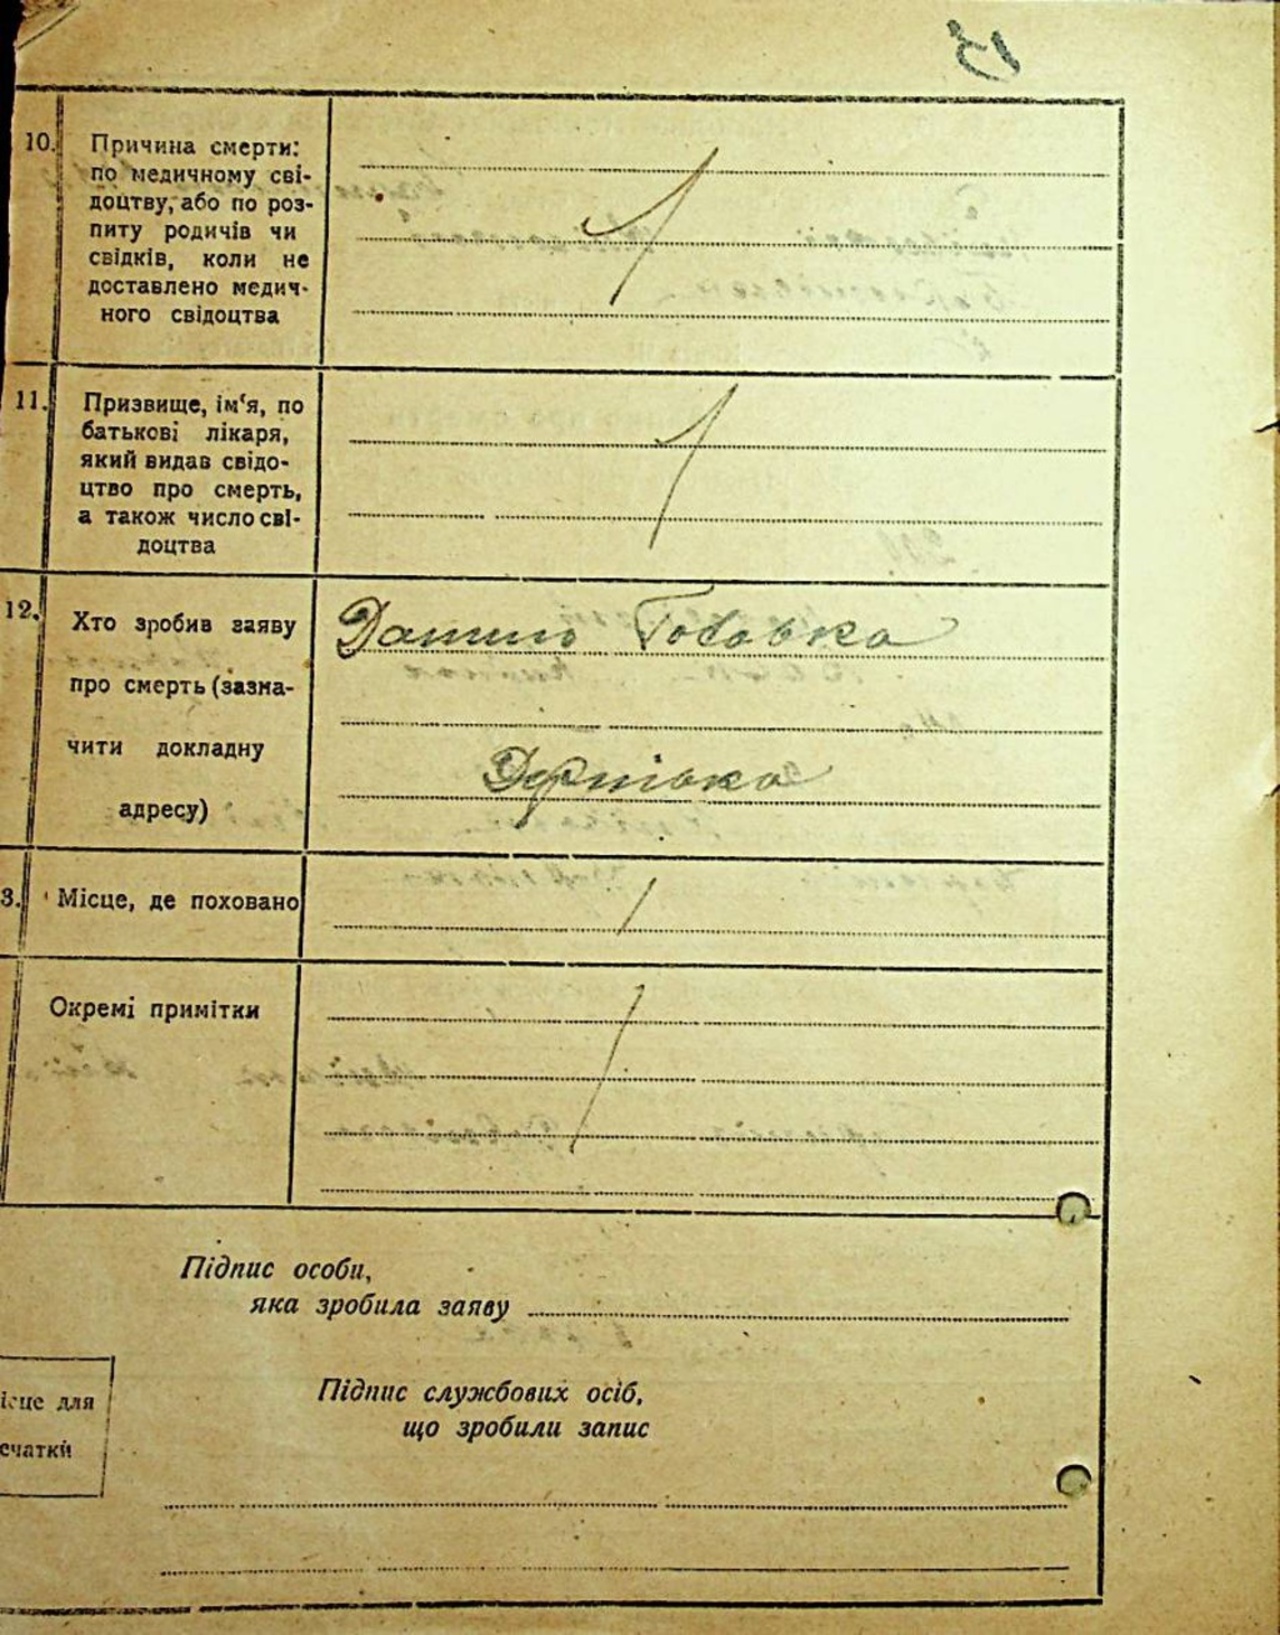 10. Причина смерти:
по медичному сві-
доцтву, або по роз-
питу родичів чи
свідків, коли не
доставлено медич-
ного свідоцтва
11. Призвище, ім‘я, по
батькові лікаря,
який видав свідо-
цтво про смерть,
а також число сві-
доцтва
12. Хто зробив заяву
про смерть (зазна-
чити докладну
адресу)
Данило
3. Місце, де поховано
Окремі примітки
Підпис особи,
яка зробила заяву
ісце для
ечатки
Підпис службових осіб,
що зробили запис